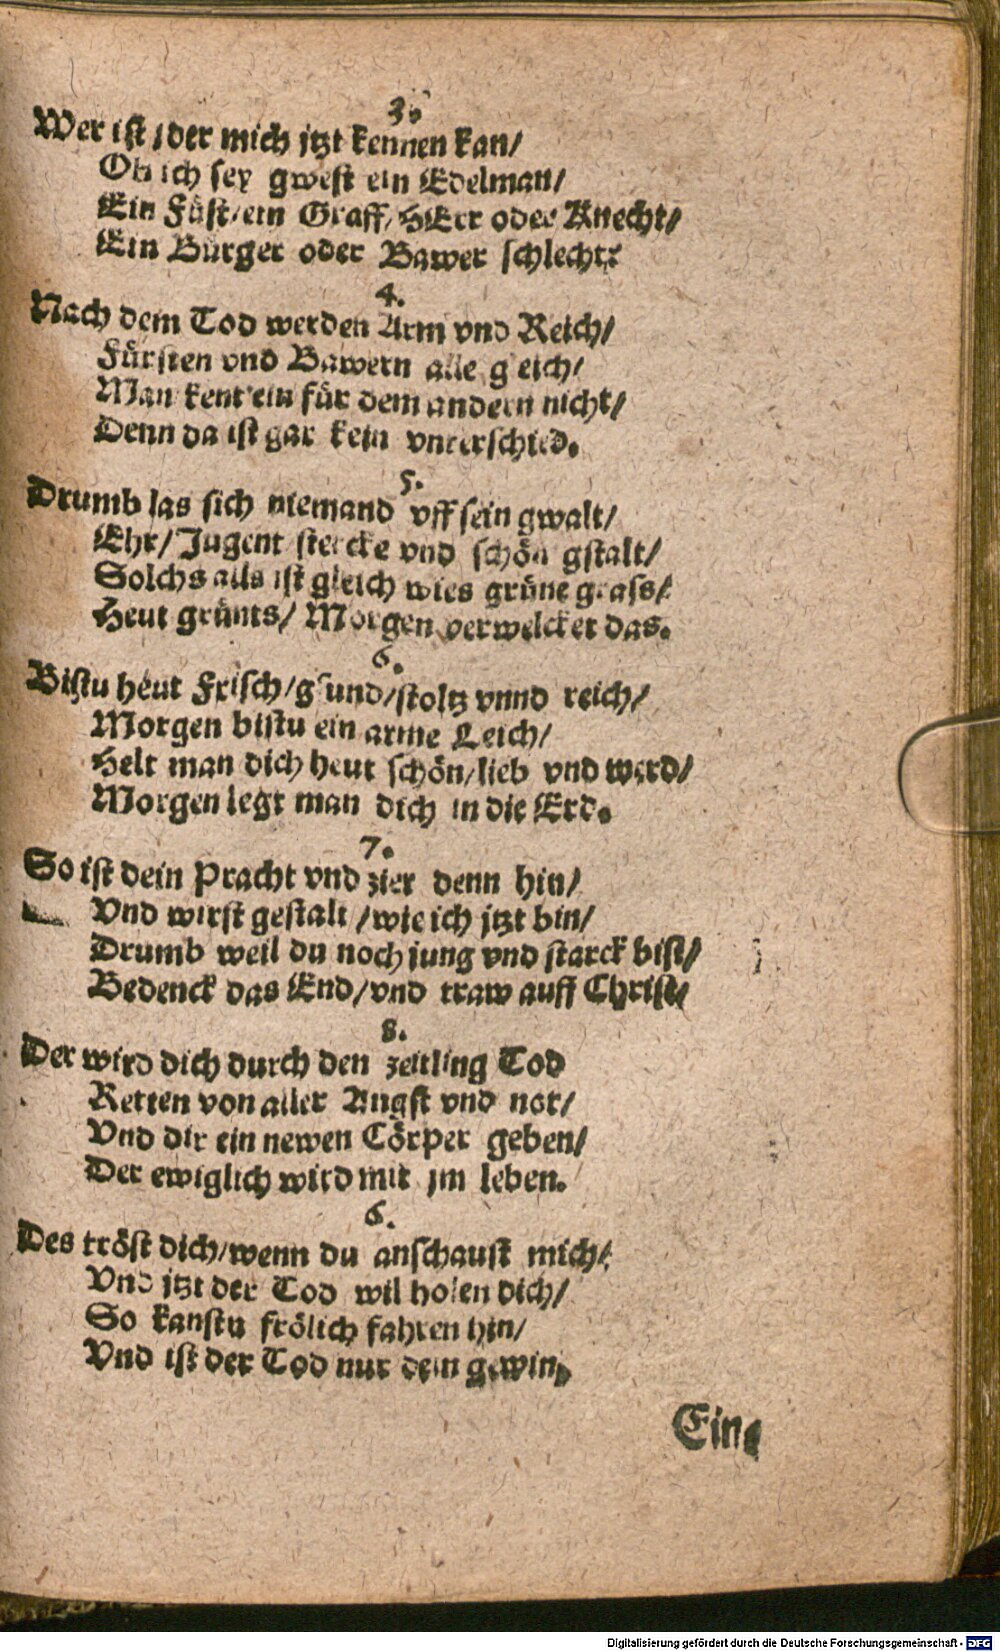 3.
Wer ist / der mich jtzt kennen kan/
Ob ich sey gwest ein Edelman/
Ein Füst/ ein Graff/ HErr oder Knecht/
Ein Bürger oder Bawer schlecht?
4.
Nach dem Tod werden Arm vnd Reich/
Fürsten vnd Bawern alle gleich/
Man kent ein für dem andern nicht/
Denn da ist gar kein vnterschied.
5.
Drumb las sich niemand vff sein gwalt/
Ehr/ Jugent stercke vnd schön gstalt/
Solchs alls ist gleich wies grüne grass/
Heut grünts/ Morgen verwelcket das.
6.
Bistu heut Frisch/ gsund/ stoltz vnnd reich/
Morgen bistu ein arme Leich/
Helt man dich heut schön/ lieb vnd werd/
Morgen legt man dich in die Erd.
7.
So ist dein Pracht vnd zier denn hin/
Vnd wirst gestalt / wie ich jtzt bin/
Drumb weil du noch jung vnd starck bist/
Bedenck das End/ vnd traw auff Christ/
8.
Der wird dich durch den zeitling Tod
Retten von aller Angst vnd not/
Vnd dir ein newen Cörper geben/
Der ewiglich wird mit jm leben.
6.
Des tröst dich/ wenn du anschaust mich/
Vnd jtzt der Tod wil holen dich/
So kanstu frölich fahren hin/
Vnd ist der Tod nur dein gewin.
Ein
Digitalisierung gefördert durch die Deutsche Forschungsgemeinschaft - DFG